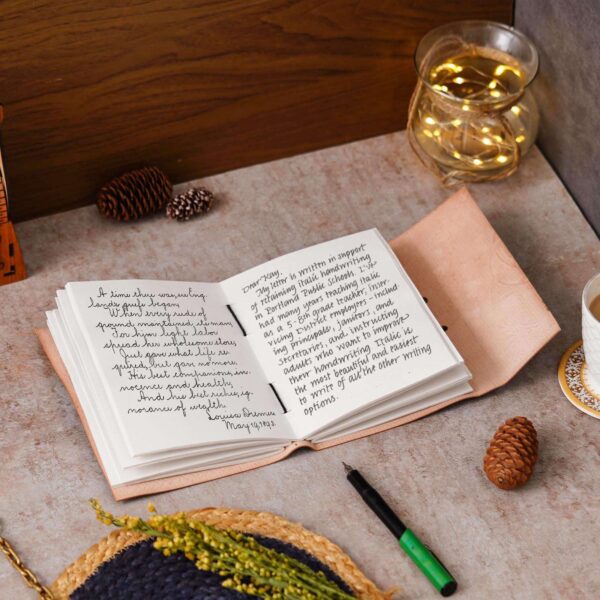 A time there was, ere Eng-
lands griefs began
When every rude of
ground maintained its man
For him light labor
spread her wholesome store,
Just gave what life re-
quired, but gave no more.
His best companions, in-
nocence and health,
And his best riches, ig-
norance of wealth.
Louisa
May 19, 1893.
Dear Kay,
My letter is written in support
of retaining italic handwriting
in Portland Public Schools. I've
had many years teaching italic
as a 5-8th grade teacher, inser-
vicing District employers - includ
ing principals, janitors, and
secretaries, and instructing
adults who want to improve
their handwriting. Italic is
the most beautiful and easiest
to write of all the other writing
options.